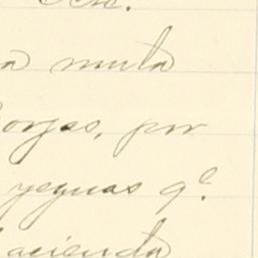 a mula
orjas, por
yeguas q.e
acienda